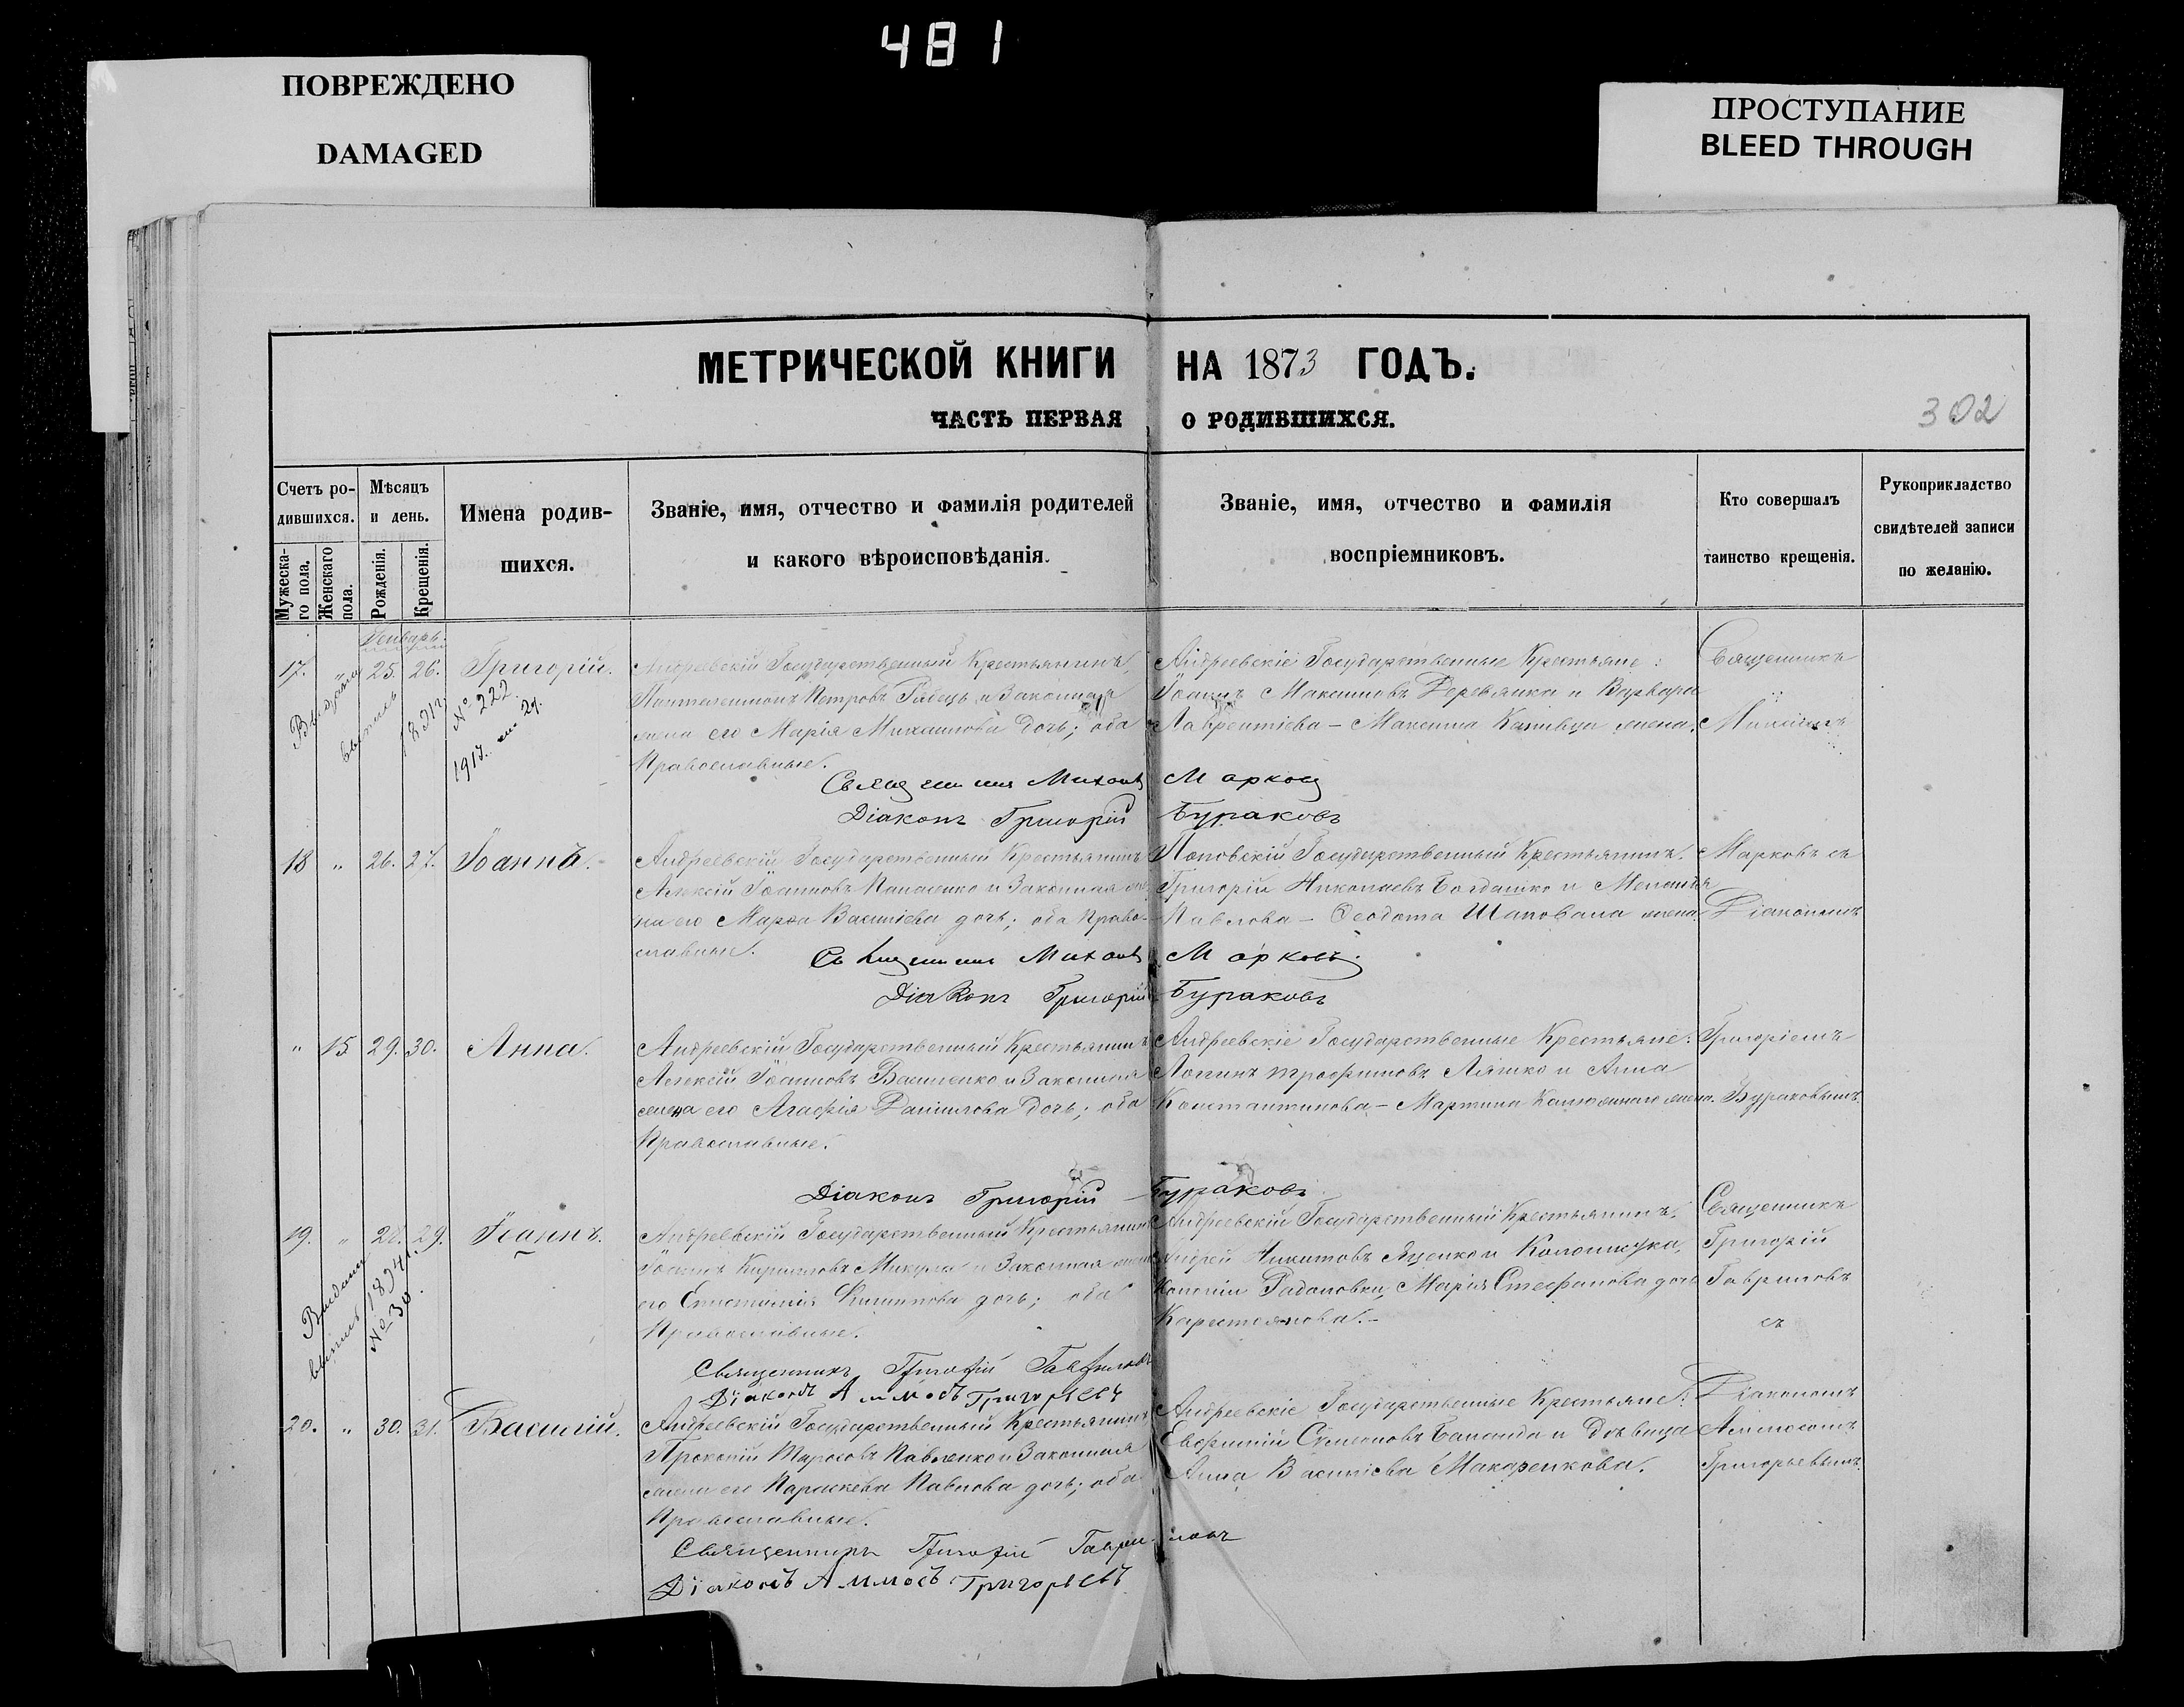 481
ПОВРЕЖДЕНО
DAMAGED
ПРОСТУПАНИЕ
BLEED THROUGH
МЕТРИЧЕСКОЙ КНИГИ НА 1873 ГОДЪ.
ЧАСТЬ ПЕРВАЯ О РОДИВШИХСЯ.
302
Счетъ ро-
дившихся.
Мужеска-
го пола.
Женскаго
пола.
Мѣсяцъ
и день.
Рожденія.
Крещенія.
Имена родив-
шихся.
Званіе, имя, отчество и фамилія родителей
и какого вѣроисповѣданія.
Званіе, имя, отчество и фамилія
воспріемниковъ.
Кто совершалъ
таинство крещенія.
Рукоприкладство
свидѣтелей записи
по желанію.
Январь.
17. " 25. 26. Григорій.
№ 222.
Андреевскій Государственный Крестьянинъ,
Пантелеимонъ Петровъ и Законная
жена его Марія Михаилова дочь; оба
Православные.
Андреевскіе Государственные Крестьяне:
Іоаннъ Максимовъ Деревянка и Варвара
Лаврентіева – Максима жена.
Священникъ
Михаилъ
Священникъ Михаилъ Марковъ
Діаконъ Григорій Бураковъ
18 " 26. 27. Іоаннъ.
Андреевскій Государственный Крестьянинъ
Алексій Іоанновъ Панасенко и Законная же-
на его Марѳа Василіева дочь; оба Право-
славные.
Поповскій Государственный Крестьянинъ,
Григорій Николаевъ Богдашко и Меланія
Павлова – Ѳеодота Шаповала жена.
Марковъ съ
Діакономъ
Священникъ Михаилъ Марковъ
Діаконъ Григорій Бураковъ
" 15 29. 30. Анна.
Андреевскій Государственный Крестьянинъ
Алексій Іоанновъ Василенко и Законная
жена его Агафія Даніилова дочь; оба
Православные.
Андреевскіе Государственные Крестьяне:
Логинъ Трофимовъ Ляшко и Анна
Константинова – Мартина жена.
Григоріемъ
Бураковымъ.
Діаконъ Григорій Бураковъ
19. " 28. 29. Іоаннъ.
Выдана
выпись 1874
№ 30.
Андреевскій Государственный Крестьянинъ
Іоаннъ Кирилловъ Микула и Законная жена
его Епистимія Филиппова дочь; оба
Православные.
Андреевскій Государственный Крестьянинъ,
Андрей Никитовъ Яценко и Колонистка,
Колоніи Радоловки, Марія Стефанова дочь
Священникъ
Григорій
Гавриловъ
съ
Священникъ Григорій Гавриловъ
Діаконъ Аммосъ Григорьевъ
20. " 30. 31. Василій.
Андреевскій Государственный Крестьянинъ
Прокопій Тарасовъ Павленко и Законная
жена его Параскева Павлова дочь; оба
Православные.
Андреевскіе Государственные Крестьяне:
Евфимій Симеоновъ и Дѣвица
Анна Василіева Макаренкова.
Діакономъ
Аммосомъ
Григорьевымъ.
Священникъ Григорій Гавриловъ
Діаконъ Аммосъ Григорьевъ